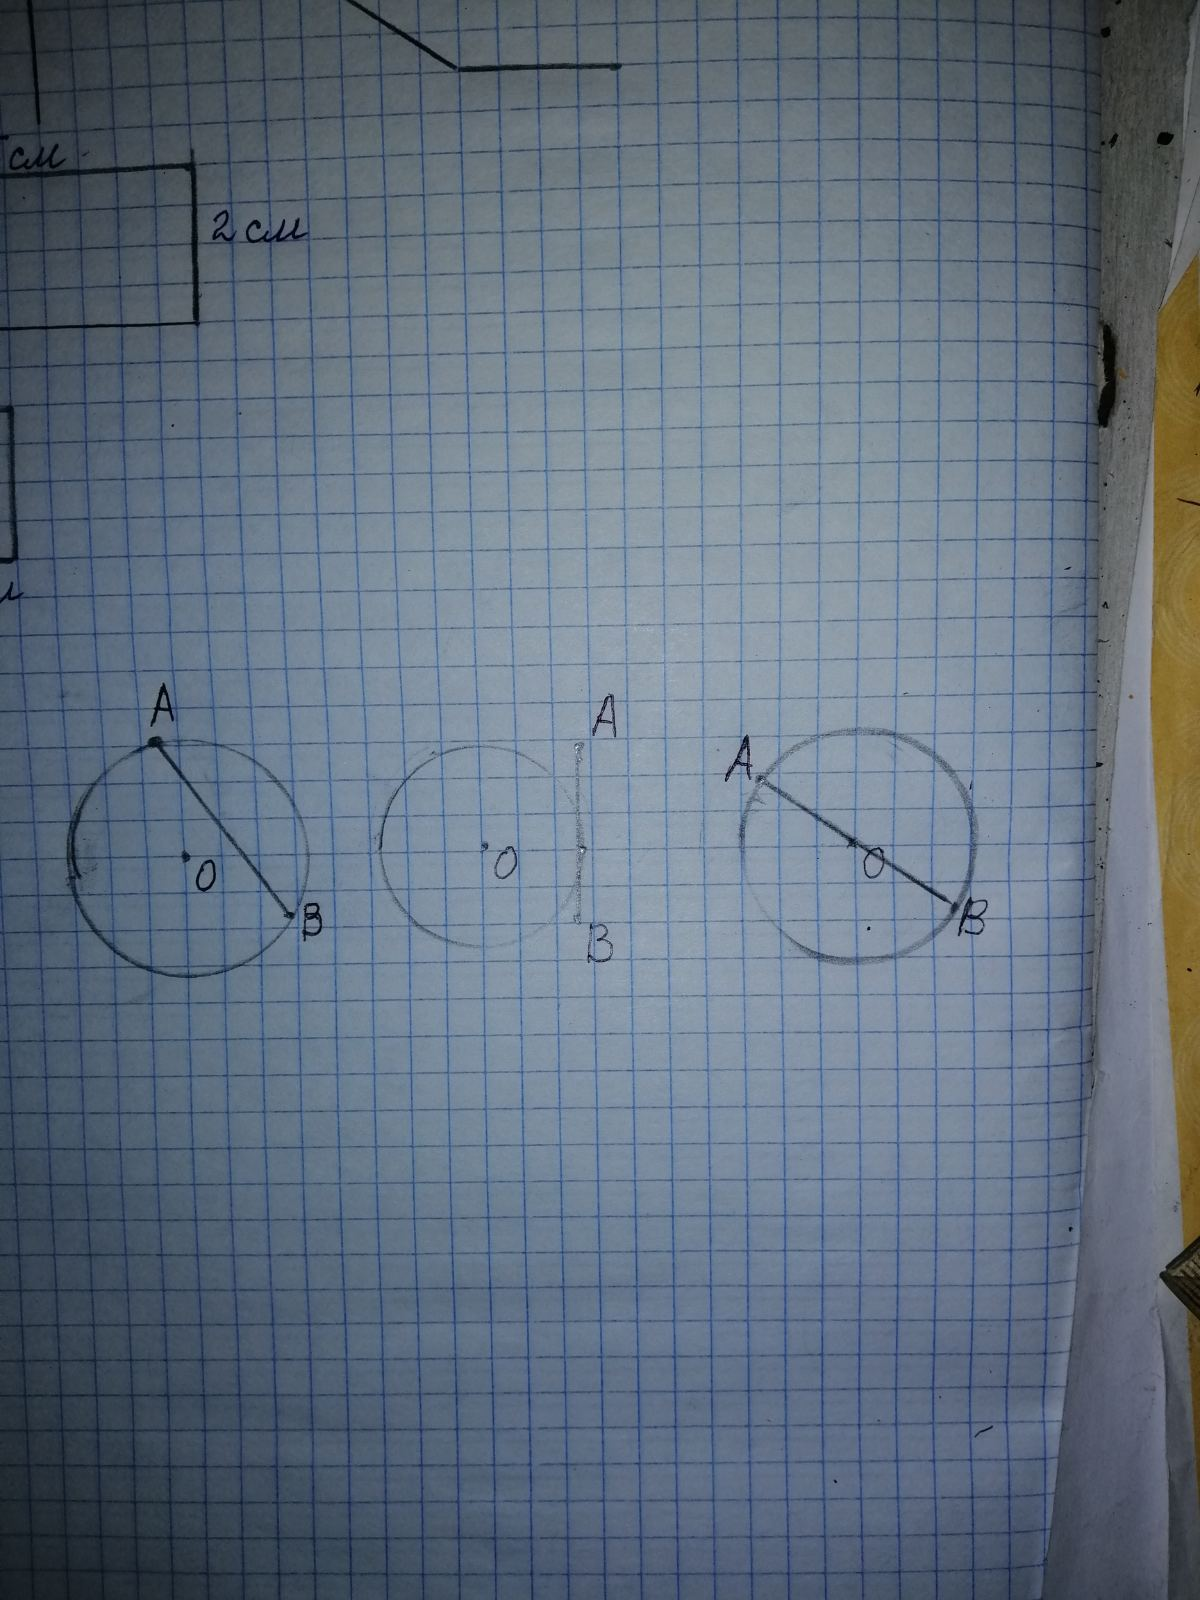 см
2 см
A
O
B
A
O
B
A
O
B